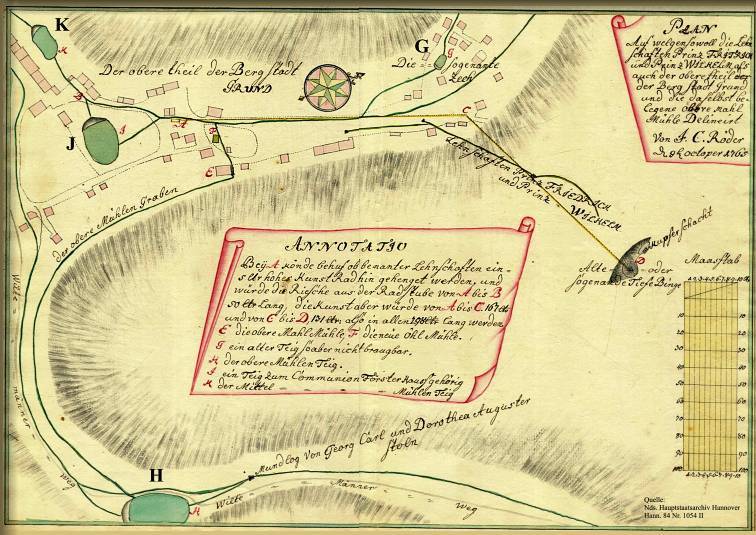 K
G
Der obere theil der Berg stadt
GRUND
Die sogenante
Zech
PLAN
Auf welgen sowoll die Lehn
schaften Prinz FRIEDRICH
und Prinz WILHELM als
auch der obere theil
der Berg stadt Grund
und die daselbst be
legene obere Mahl
Mühle Delineirt
Von J. C. Röder
October 1765
C
B
A
J
F
E
Lehnschaften Prinz FRIEDRICH
und Prinz WILHELM
der obere Mühlen Graben
Kupferschacht
D
Alte oder
sogenante Tiefe Binge
Maasstab
ANNOTATIO
Beÿ A könde behuf obbenanter Lehnschaften ein
hohes Kunst Rad hin gehenget werden, und
würde die Rösche aus der Radstube von A bis B
50 ltr Lang, die Kunst aber würde von A bis C 167 ltr
und von C bis D 131 ltr also in allen 298 ltr Lang werden
E die obere Mahl Mühle, F die neue Öhl Mühle.
G ein alter Teig so aber nicht braugbar.
H der obere Mühlen Teig.
J ein Teig zum Communion Förster Hauss gehörig
K der Mittel Mühlen Teig
10
20
30
40
50
60
70
80
90
100
Mundlog von Georg Carl und Dorothea Auguster
Stoln
H
Wilte Männer Weg
Wilte Männer Weg
Quelle:
Nds. Hauptstaatsarchiv Hannover
Hann. 84 Nr. 1054 II